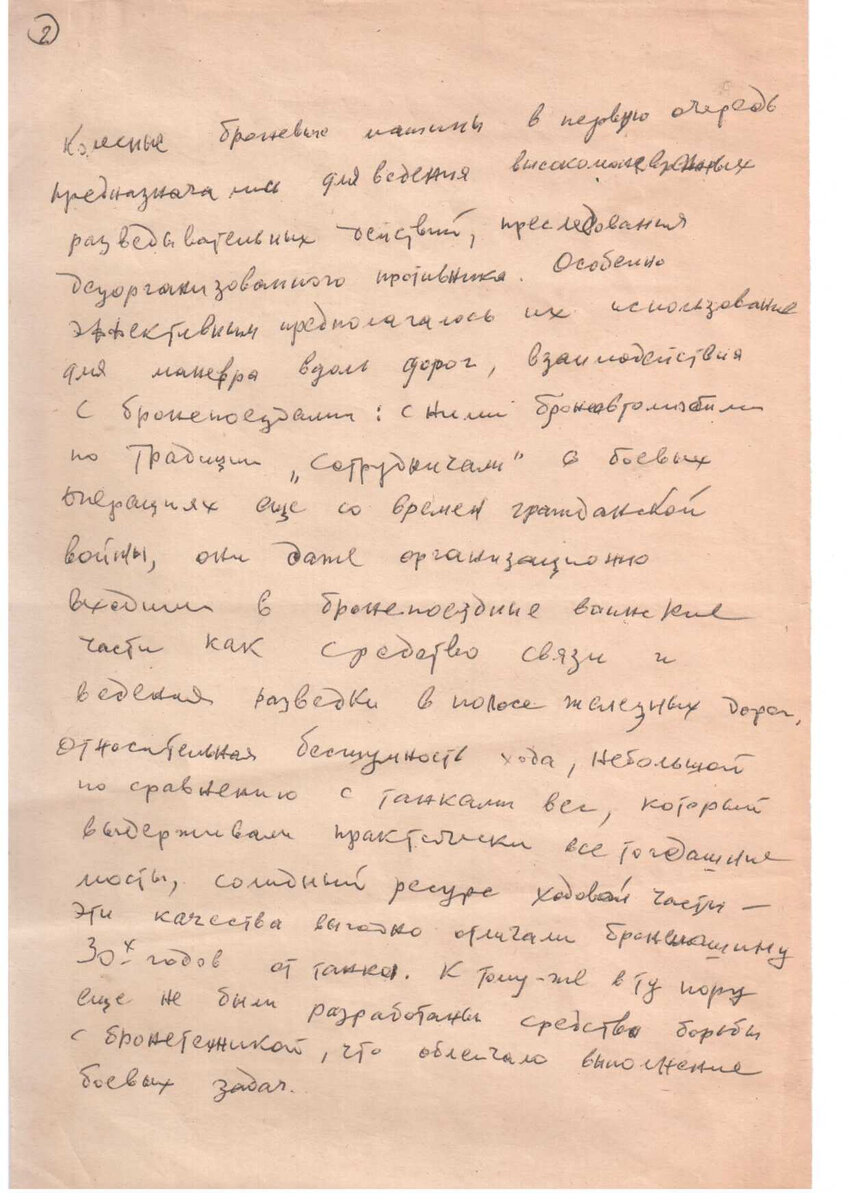 2
Колесные броневые машины в первую очередь
предназначались для ведения высокоманевренных
разведывательных действий, преследования
дезорганизованного противника. Особенно
эффективным предполагалось их использование
для маневра вдоль дорог, взаимодействия
с бронепоездами: с ними бронеавтомобили
по традиции „сотрудничали" в боевых
операциях еще со времен гражданской
войны, они даже организационно
входили в бронепоездные воинские
части как средство связи и
ведения разведки в полосе железных дорог,
относительная бесшумность хода, небольшой
по сравнению с танками вес, который
выдерживали практически все тогдашние
мосты, солидный ресурс ходовой части —
эти качества выгодно отличали бронемашину
30х годов от танка. К тому-же в ту пору
еще не были разработаны средства борьбы
с бронетехникой, что облегчало выполнение
боевых задач.